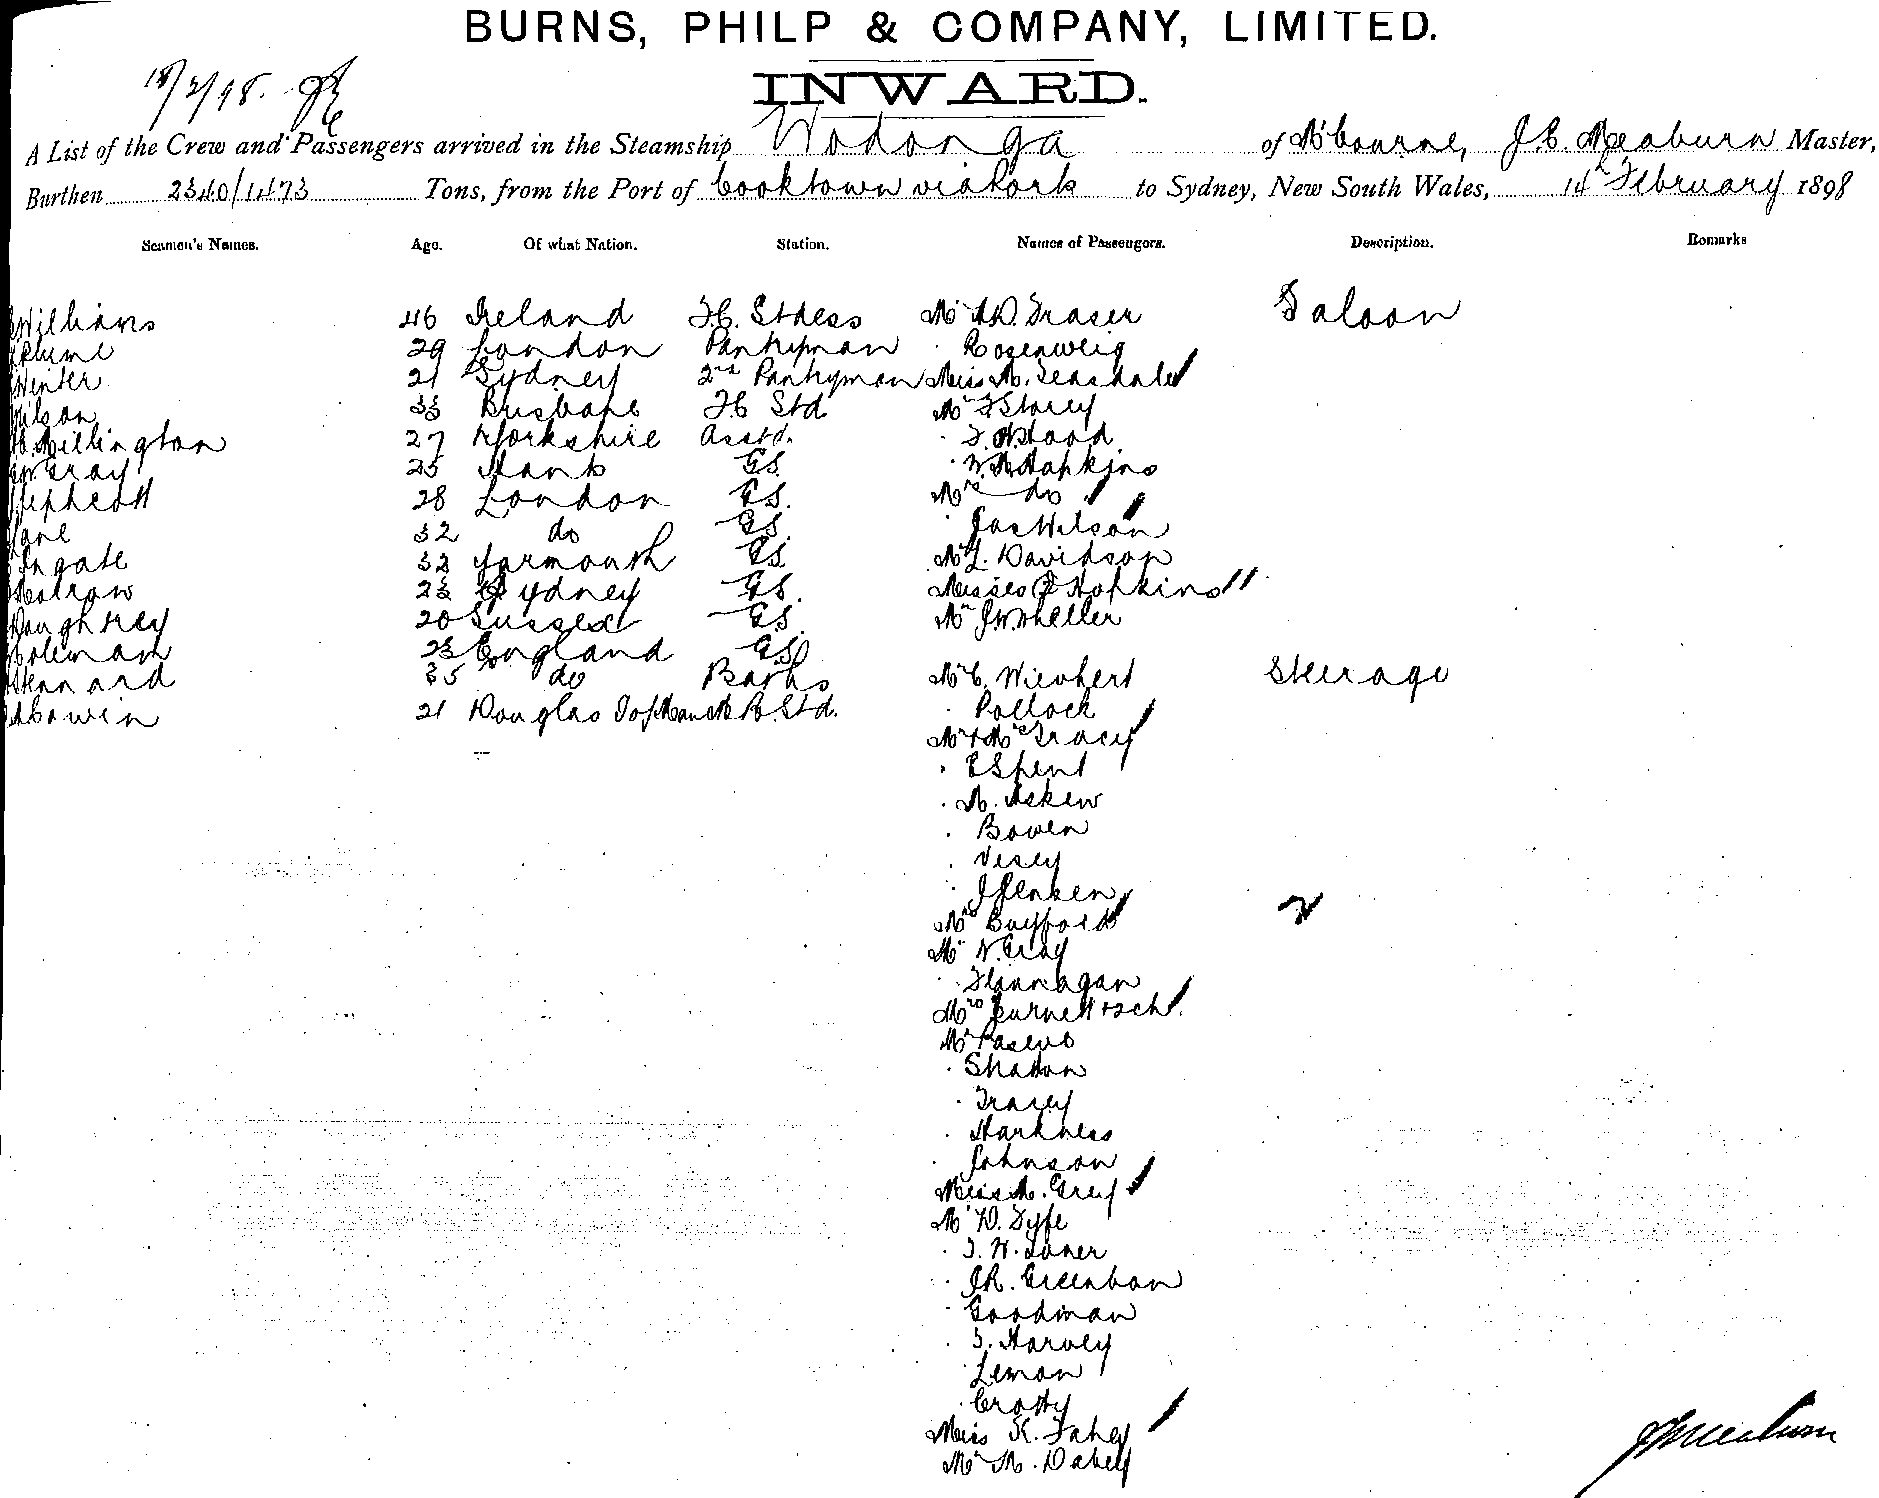 BURNS, PHILP & COMPANY, LIMITED.
INWARD.
18/2/98.
A List of the Crew and Passengers arrived in the Steamship Wodonga of M'bourne, J.C. Meaburn Master,
Burthen 2340/1473 Tons, from the Port of Cooktown via Ports to Sydney, New South Wales, 14th February 1898
Seamen's Names. Age. Of what Nation. Station. Names of Passengers. Description. Remarks
Williams 46 Ireland F.C. Stdess Mr A.D. Fraser Saloon
29 London Pantryman " Rosenweig
Winter 21 Sydney 2nd Pantryman Miss M. Teasdale
ilson 33 Brisbane F C Std Mr F Storey
Millington 27 Yorkshire Asstd. " F. Wood
Gray 25 Hants G.S. " W.R. Hopkins
ephcott 28 London G.S. Mrs do
ane 32 do G.S. " Jas Wilson
ngate 32 Yarmouth G.S. Mr L. Davidson
23 Sydney G.S. Misses 2 Hopkins
aughtrey 20 Sussex G.S. Mr J.W. Wheller
oleman 23 England G.S.
ennard 35 do Barks Mr C. Wievhert Steerage
21 Douglas I of Man Std. " Pollock
Mr & Mrs Tracey
" E Spent
" A. Askew
" Bowen
" Vesey
" J Jensen
Mrs Bayford
Mr N. Gray
" Flannagan
Mrs Burnett & 2 ch.
Mr Pasevo
" Shadon
" Tracey
" Harkness
" Johnson
Miss M. Grey
Mr D. Fyfe
" T. W. Laner
" J.R. Greenbon
" Goodman
" S. Harvey
" Lemon
" Crotty
Miss K. Fahey
Mr M. Dahey
J C Meaburn